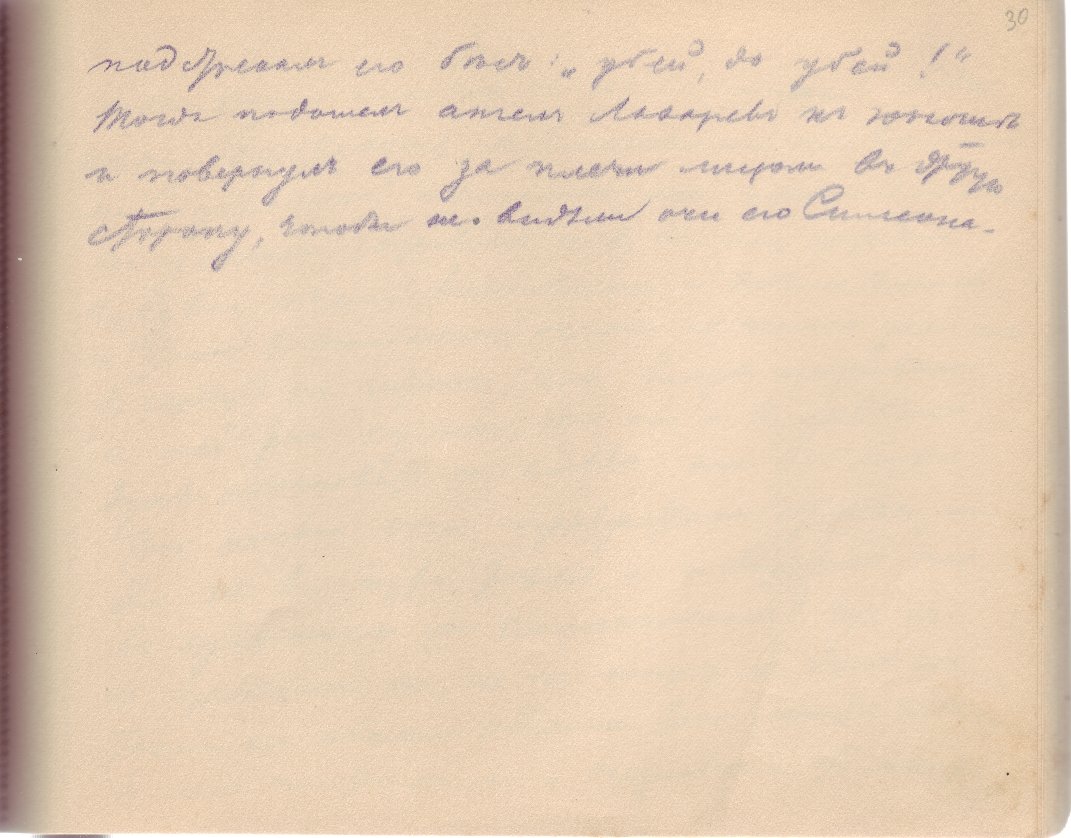 30
подстрекалъ его бѣсъ: „убей, да убей!“
Тогда подошелъ ангелъ Лазаревъ къ юношѣ
и повернулъ его за плечи лицомъ въ другую
сторону, чтобы не видѣли очи его Симеона.